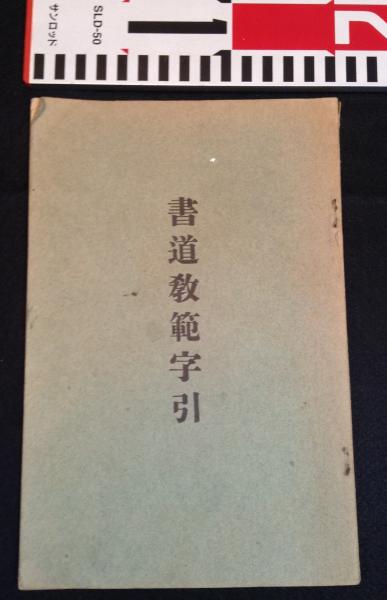 サンロッド
SLD-50
1
書道教範字引